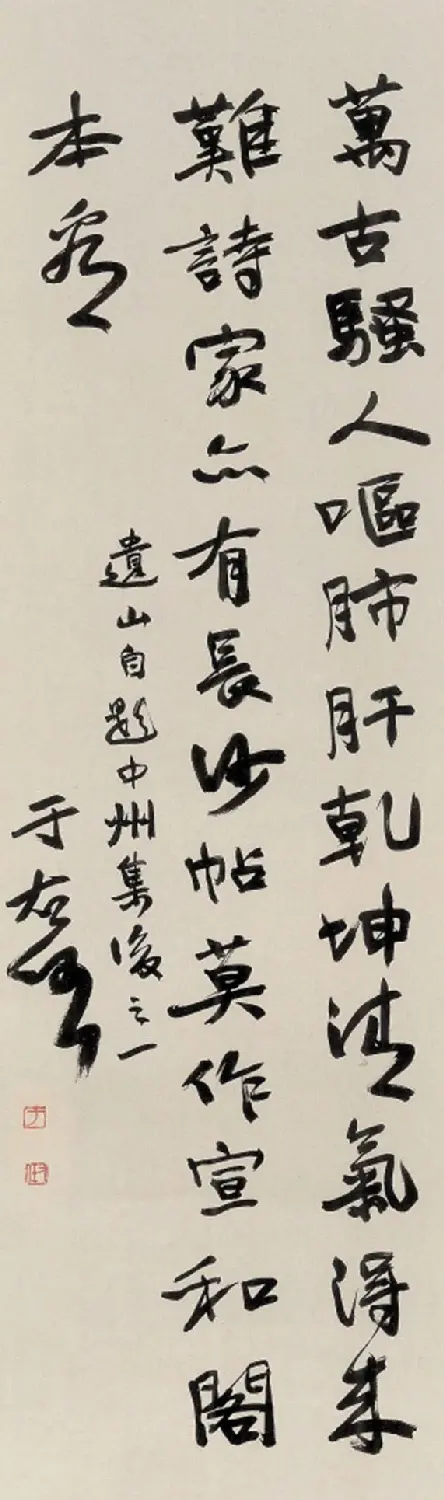 萬古騷人嘔肺肝乾坤清氣得來
難詩家亦有長沙帖莫作宣和閣
本看
遺山自題中州集後之一
于右任